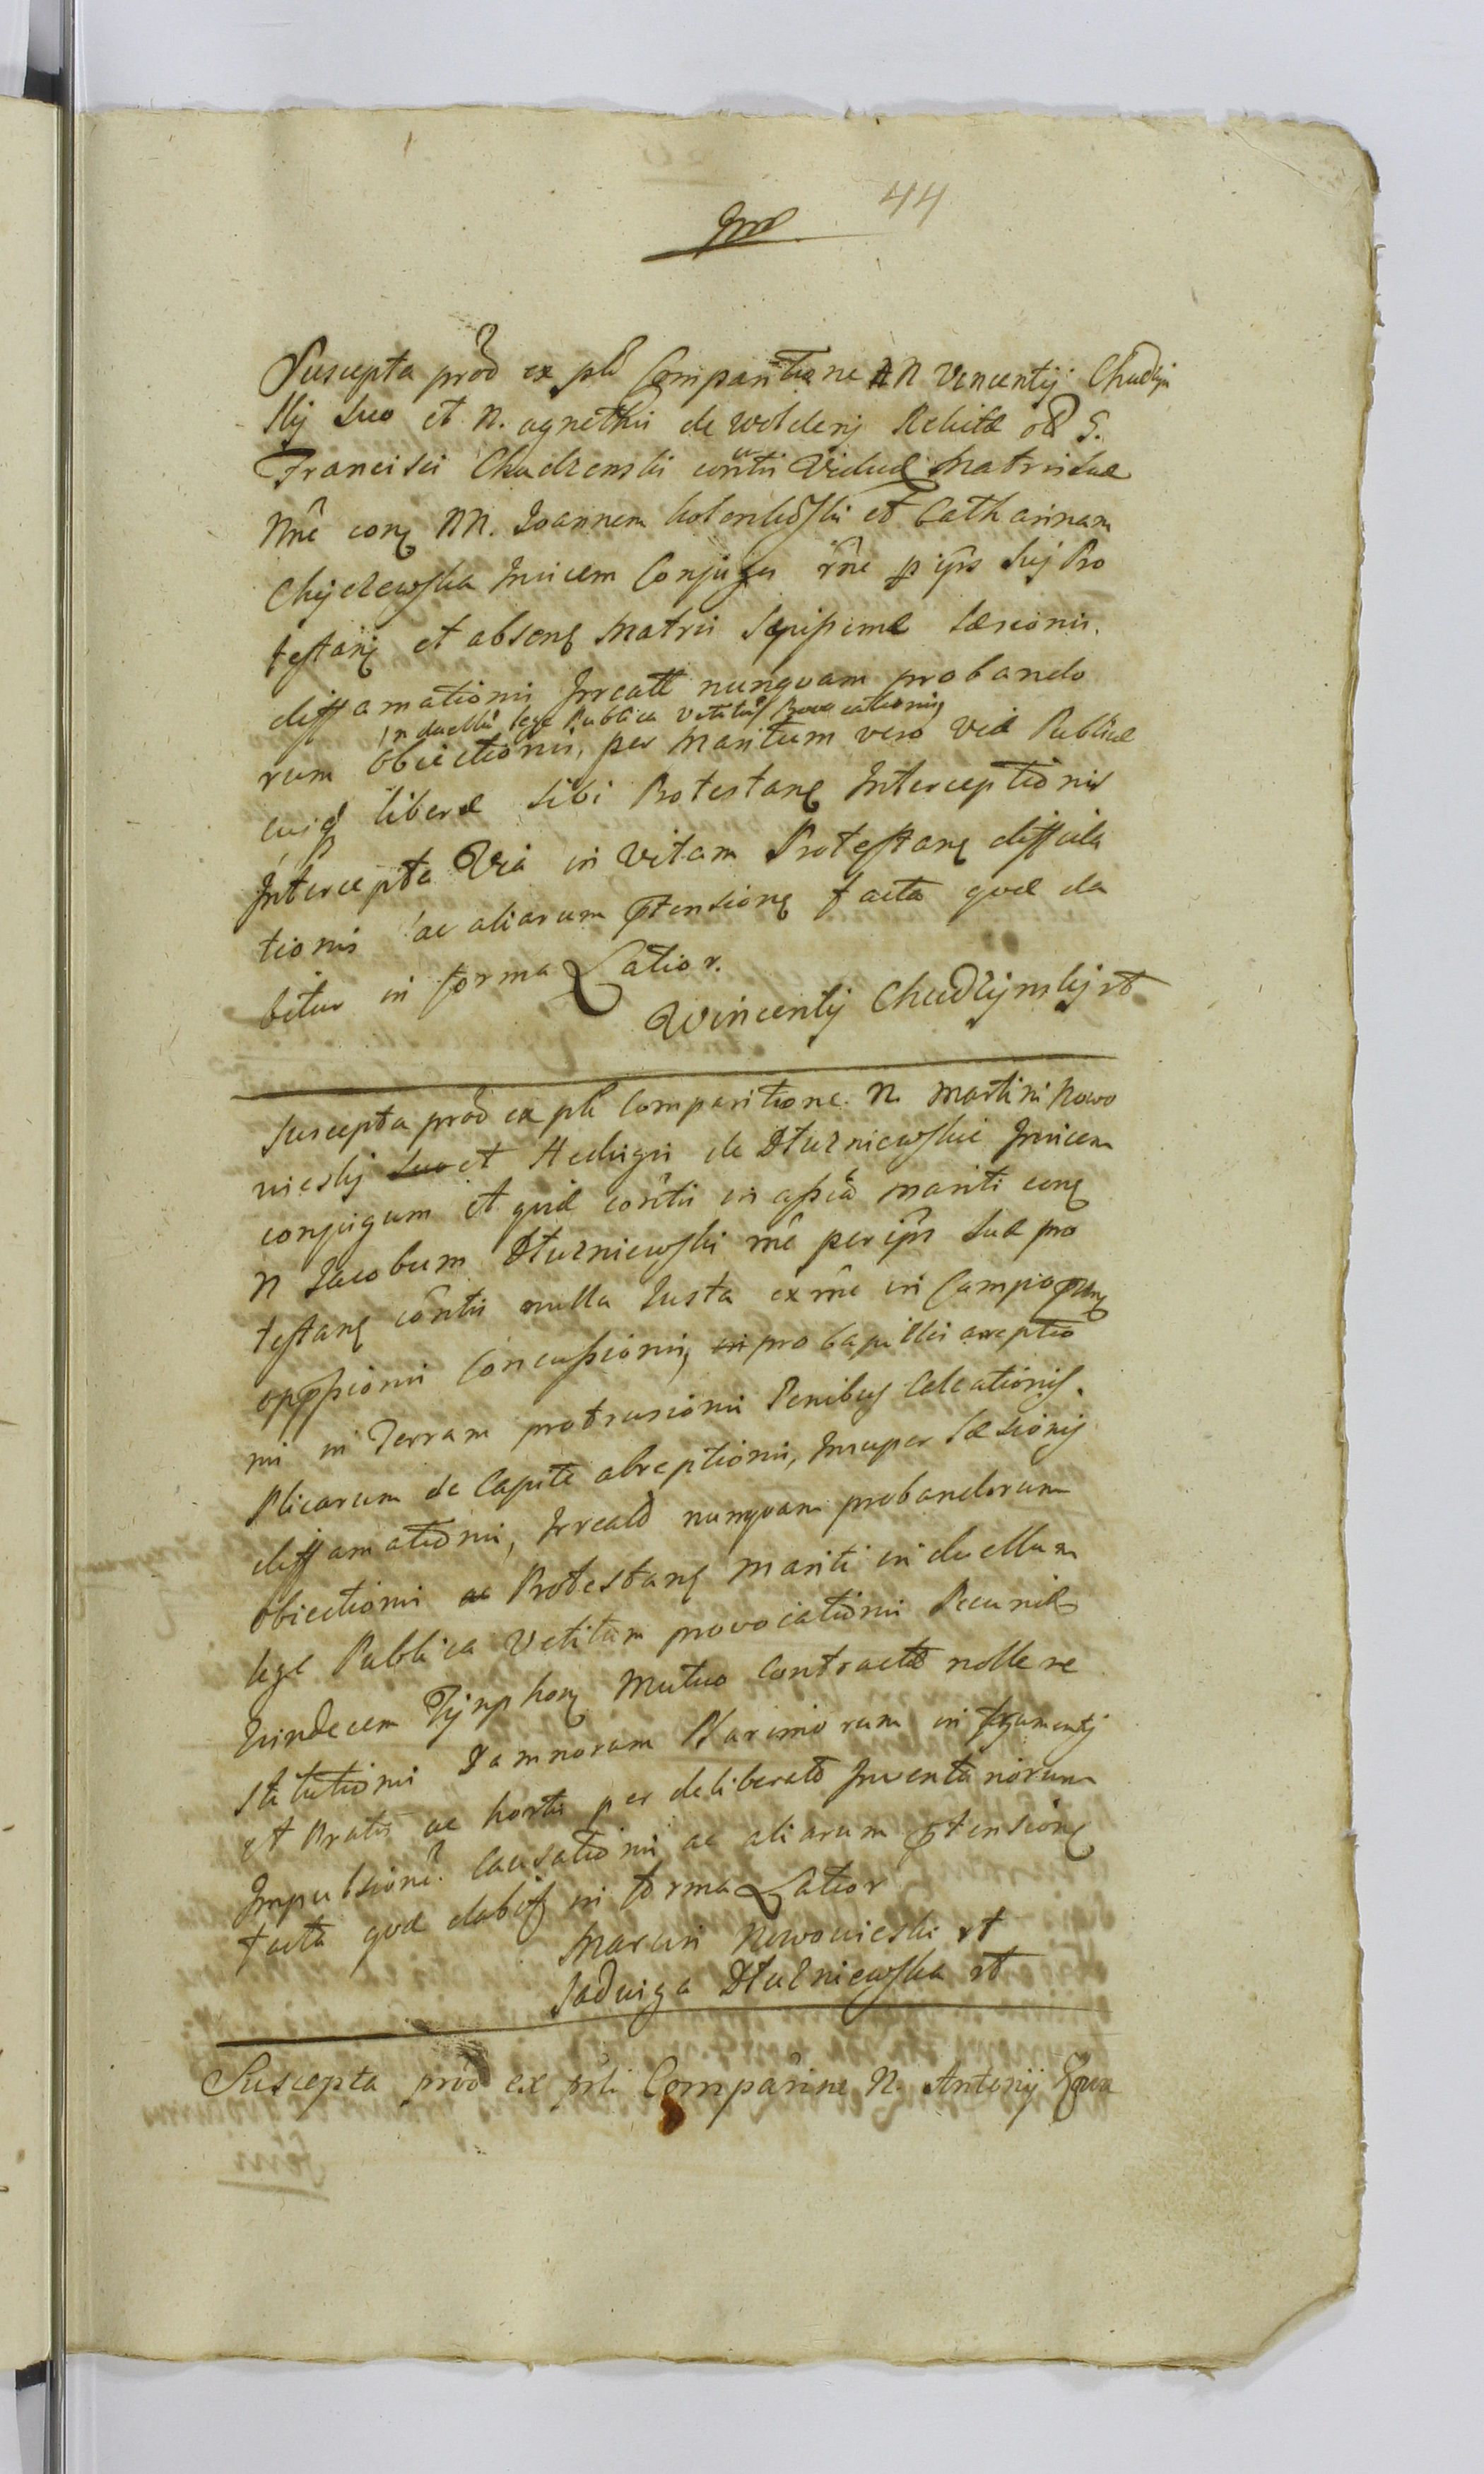 44
Suscepta prod ex pti Comparitione NN Vincentij Chudzyn
skij suo et N. agnethis de wolderij Relictæ olð G.
Francisci Chudzenski contis Viduæ Matris suæ
nnê conq NN. Joannem kolenkoski et Catharinam
Chyczewska Invicem Conjuges rne p ips suj Pro
testanq et absenq Matris sæpissimæ Læsionis.
diffamationis Irrealt nunquam probando
in duellū lege Publica vetitū Provocationis
rum obiectionis, per Maritum vero Viæ Publicæ
cuiq liberæ sibi Protestanq Interceptionis
Intercepta Via in Vitam Protestanq diffida
tionis ac aliarum ptensionq facta quæ da
bitur in forma Latior.
Wincenty Chudzynskij rt
Suscepta prod ex pti Comparitione. N. Martini Nowo
wieskij suo et Hedvigis de Dłuzniewskie Invicem
conjugum et quid contis in assia mariti conq
N Jacobum Dłuzniewski rnê per ips suæ pro
testanq côntis nulla Justa ex rne in Campo
oppssionis Concussionis, in pro Capillis arreptio
nis in Terram protrusionis Penibus Calcationis.
Plicarum de Capite abreptionis, Insuper Læsionis
diffamationis, Irreald nunquam probandorum
obiectionis ac Protestanq mariti in duellum
lege Publica Vetitum provocationis Pecuniæ
Undecem Tynphonq Mutuo Contractæ nolle re
stitutionis Damnorum Plurimorum in frumentis
et Pratis ac hortis per deliberatā Inventariorum
Impulsionê Causationis ac aliarum ptensionq
facta quæ dabitq in forma Latior
Marcin Nowowieski rt
Jadwiga Dłuzniewska rt
Suscepta prod ex pti Comparine N. Antonij